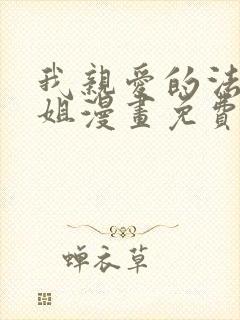 我親愛的法
姐漫畫免費
蝉衣草